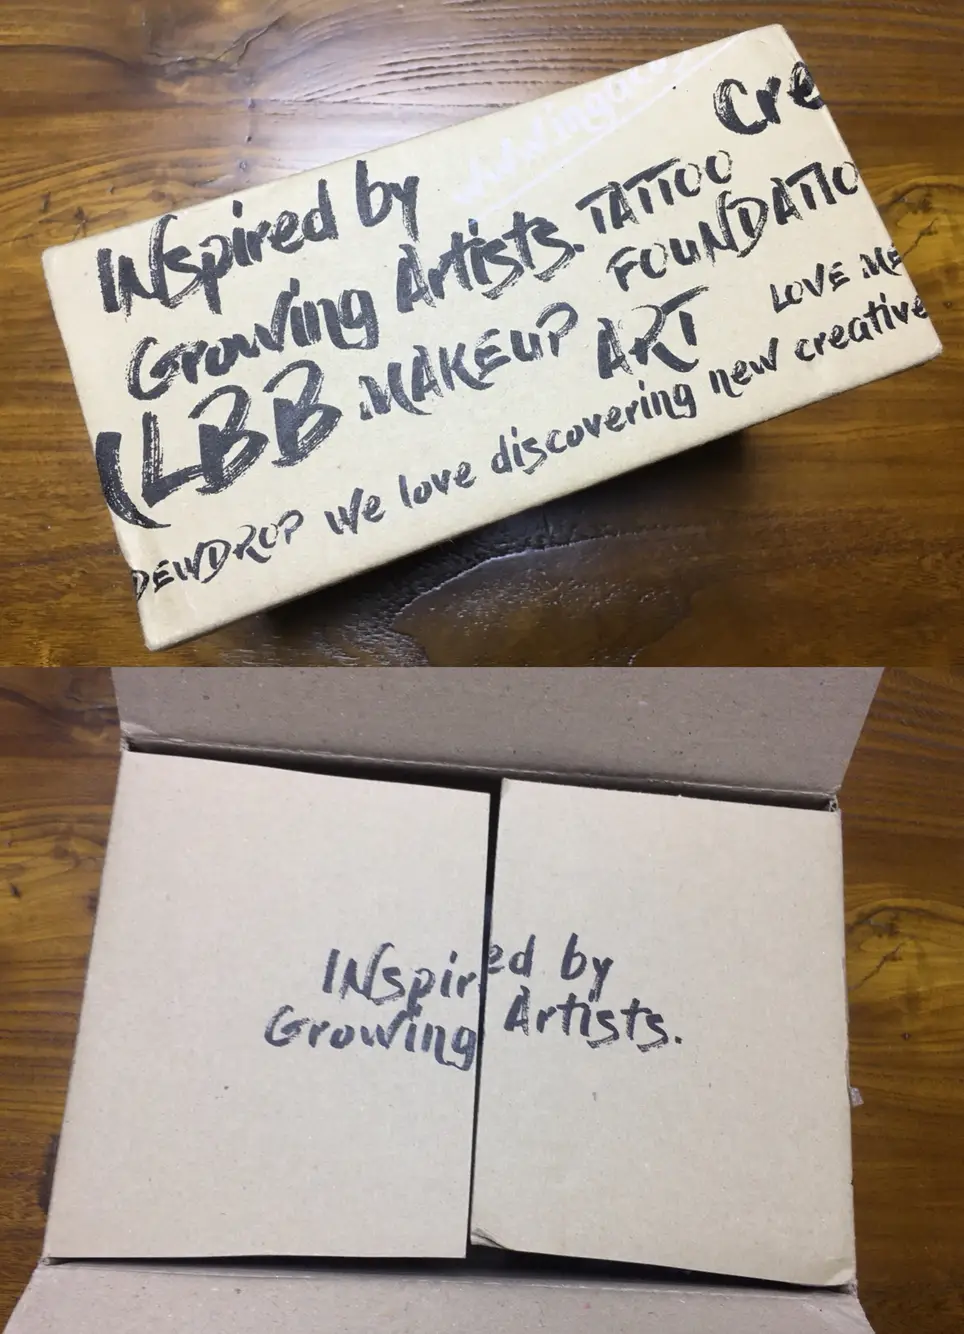 INspired by
Growing Artists. TATTOO
FOUNDATIO
Cre
(LBB MAKEUP ART
LOVE ME
DEWDROP We love discovering new creative
INspired by
Growing Artists.